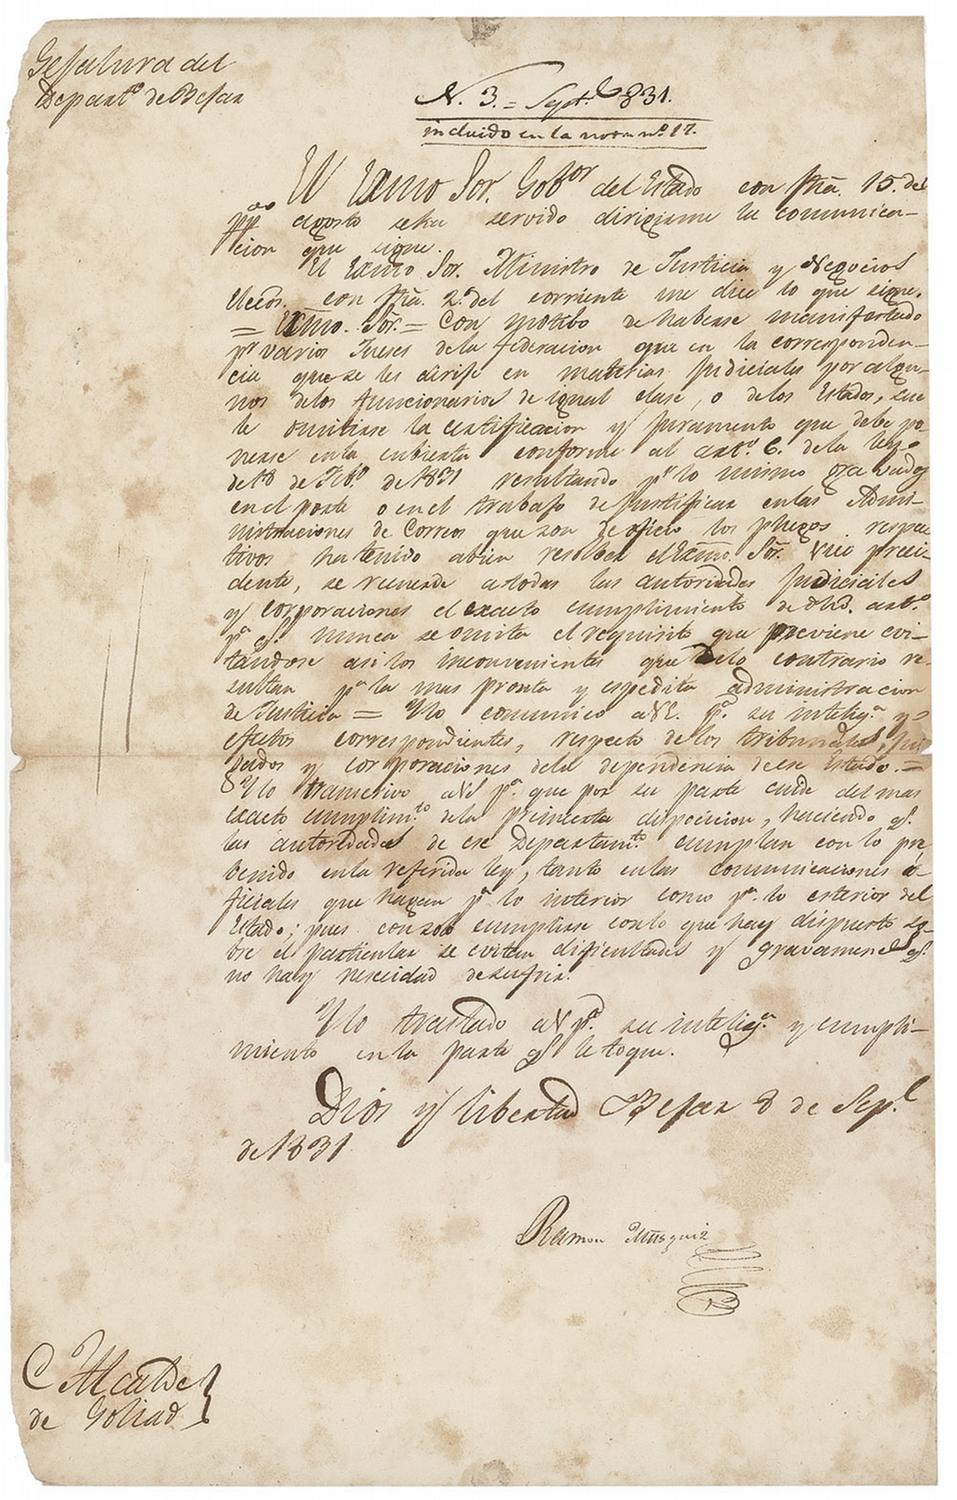 Gefatura del
Departo. de Bejar
N. 3. = Sept.e 831.
incluido en la norma no. 17.
El Exmo Sor. Gobor del Estado con fha. 15. del
ppo. agosto seha servido dirigirme la comunica-
cion que sigue.
El Exmo Sor. Ministro de Justicia y Negocios
Ecccos. con fha. 2 del corriente me dice lo que sigue.
= Exmo. Sor. = Con motibo de haberse manifestado
pr varios Jueses dela federacion que en la corresponden-
cia que se les dirije en materias judiciales por algu-
nos delos funcionarios de igual clase, o de los Estados, sue
le omitirse la certificacion y juramento que debe po-
nerse enla cubierta conforme al arto. 6. de la ley
de 18 de Febo. de 1831 resultando pr lo mismo grabados
enel porte o enel trabajo de justificar enlas Admi-
nistraciones de Correos que son de oficio los pliegos respec
tivos ha tenido abien resolber el Exmo. Sor. Vice preci-
dente, se recuerde atodas las autoridades judiciales
y corporaciones el exacto cumplimiento de dho. arto.
pa. qe. nunca se omita el requisito que previene evi-
tandose asi los inconvenientes que delo contrario re-
sultan pa la mas pronta y espedita administracion
de Justicia = Y lo comunico a VE. pa. su inteliga. y
efectos correspondientes, respecto delos tribunales, juz
gados y corporaciones dela dependencia de ese Estado. =
Y lo transcrivo a VS pa. que por su parte cuide del mas
exacto cumplimto. dela primerta disposicion, haciendo qe.
las autoridades de ese Departamto. cumplan con lo pre
benido enla referida ley, tanto enlas comunicaciones o-
ficiales que hagan pa. lo interior como pa. lo esterior del
Estado; pues con solo cumplirse conlo que hay dispuesto so-
bre el particular se evitan dificultades y gravamenes qe.
no hay neseidad desufrir.
Y lo traslado a V pa. su inteliga. y cumpli-
miento en la parte qe le toque.
Dios y libertad Bejar 8 de Sepe.
de 1831
Ramon Musquiz
C. Alcalde
de Goliad